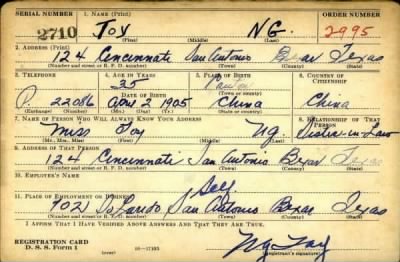 SERIAL NUMBER 1. NAME (Print) ORDER NUMBER
2710 Joy NG. 2995
(First) (Middle) (Last)
2. ADDRESS (Print)
124 Cincinnati San Antonio Bexar Texas
(Number and street or R. F. D. number) (Town) (County) (State)
3. TELEPHONE 4. AGE IN YEARS 5. PLACE OF BIRTH 6. COUNTRY OF CITIZENSHIP
35 Canton
DATE OF BIRTH (Town or county)
P. 22086 2 1905 China China
(Exchange) (Number) (Mo.) (Day) (Yr.) (State or country)
7. NAME OF PERSON WHO WILL ALWAYS KNOW YOUR ADDRESS 8. RELATIONSHIP OF THAT PERSON
Miss Joy Ng. Sister-in-Law
(Mr., Mrs., Miss) (First) (Middle) (Last)
9. ADDRESS OF THAT PERSON
124 Cincinnati San Antonio Bexar Texas
(Number and street or R. F. D. number) (Town) (County) (State)
10. EMPLOYER'S NAME
Self
11. PLACE OF EMPLOYMENT OR BUSINESS
902 San Antonio Bexar Texas
(Number and street or R. F. D. number) (Town) (County) (State)
I AFFIRM THAT I HAVE VERIFIED ABOVE ANSWERS AND THAT THEY ARE TRUE.
REGISTRATION CARD
D. S. S. Form 1 16—17105 Ng Joy
(Registrant's signature)